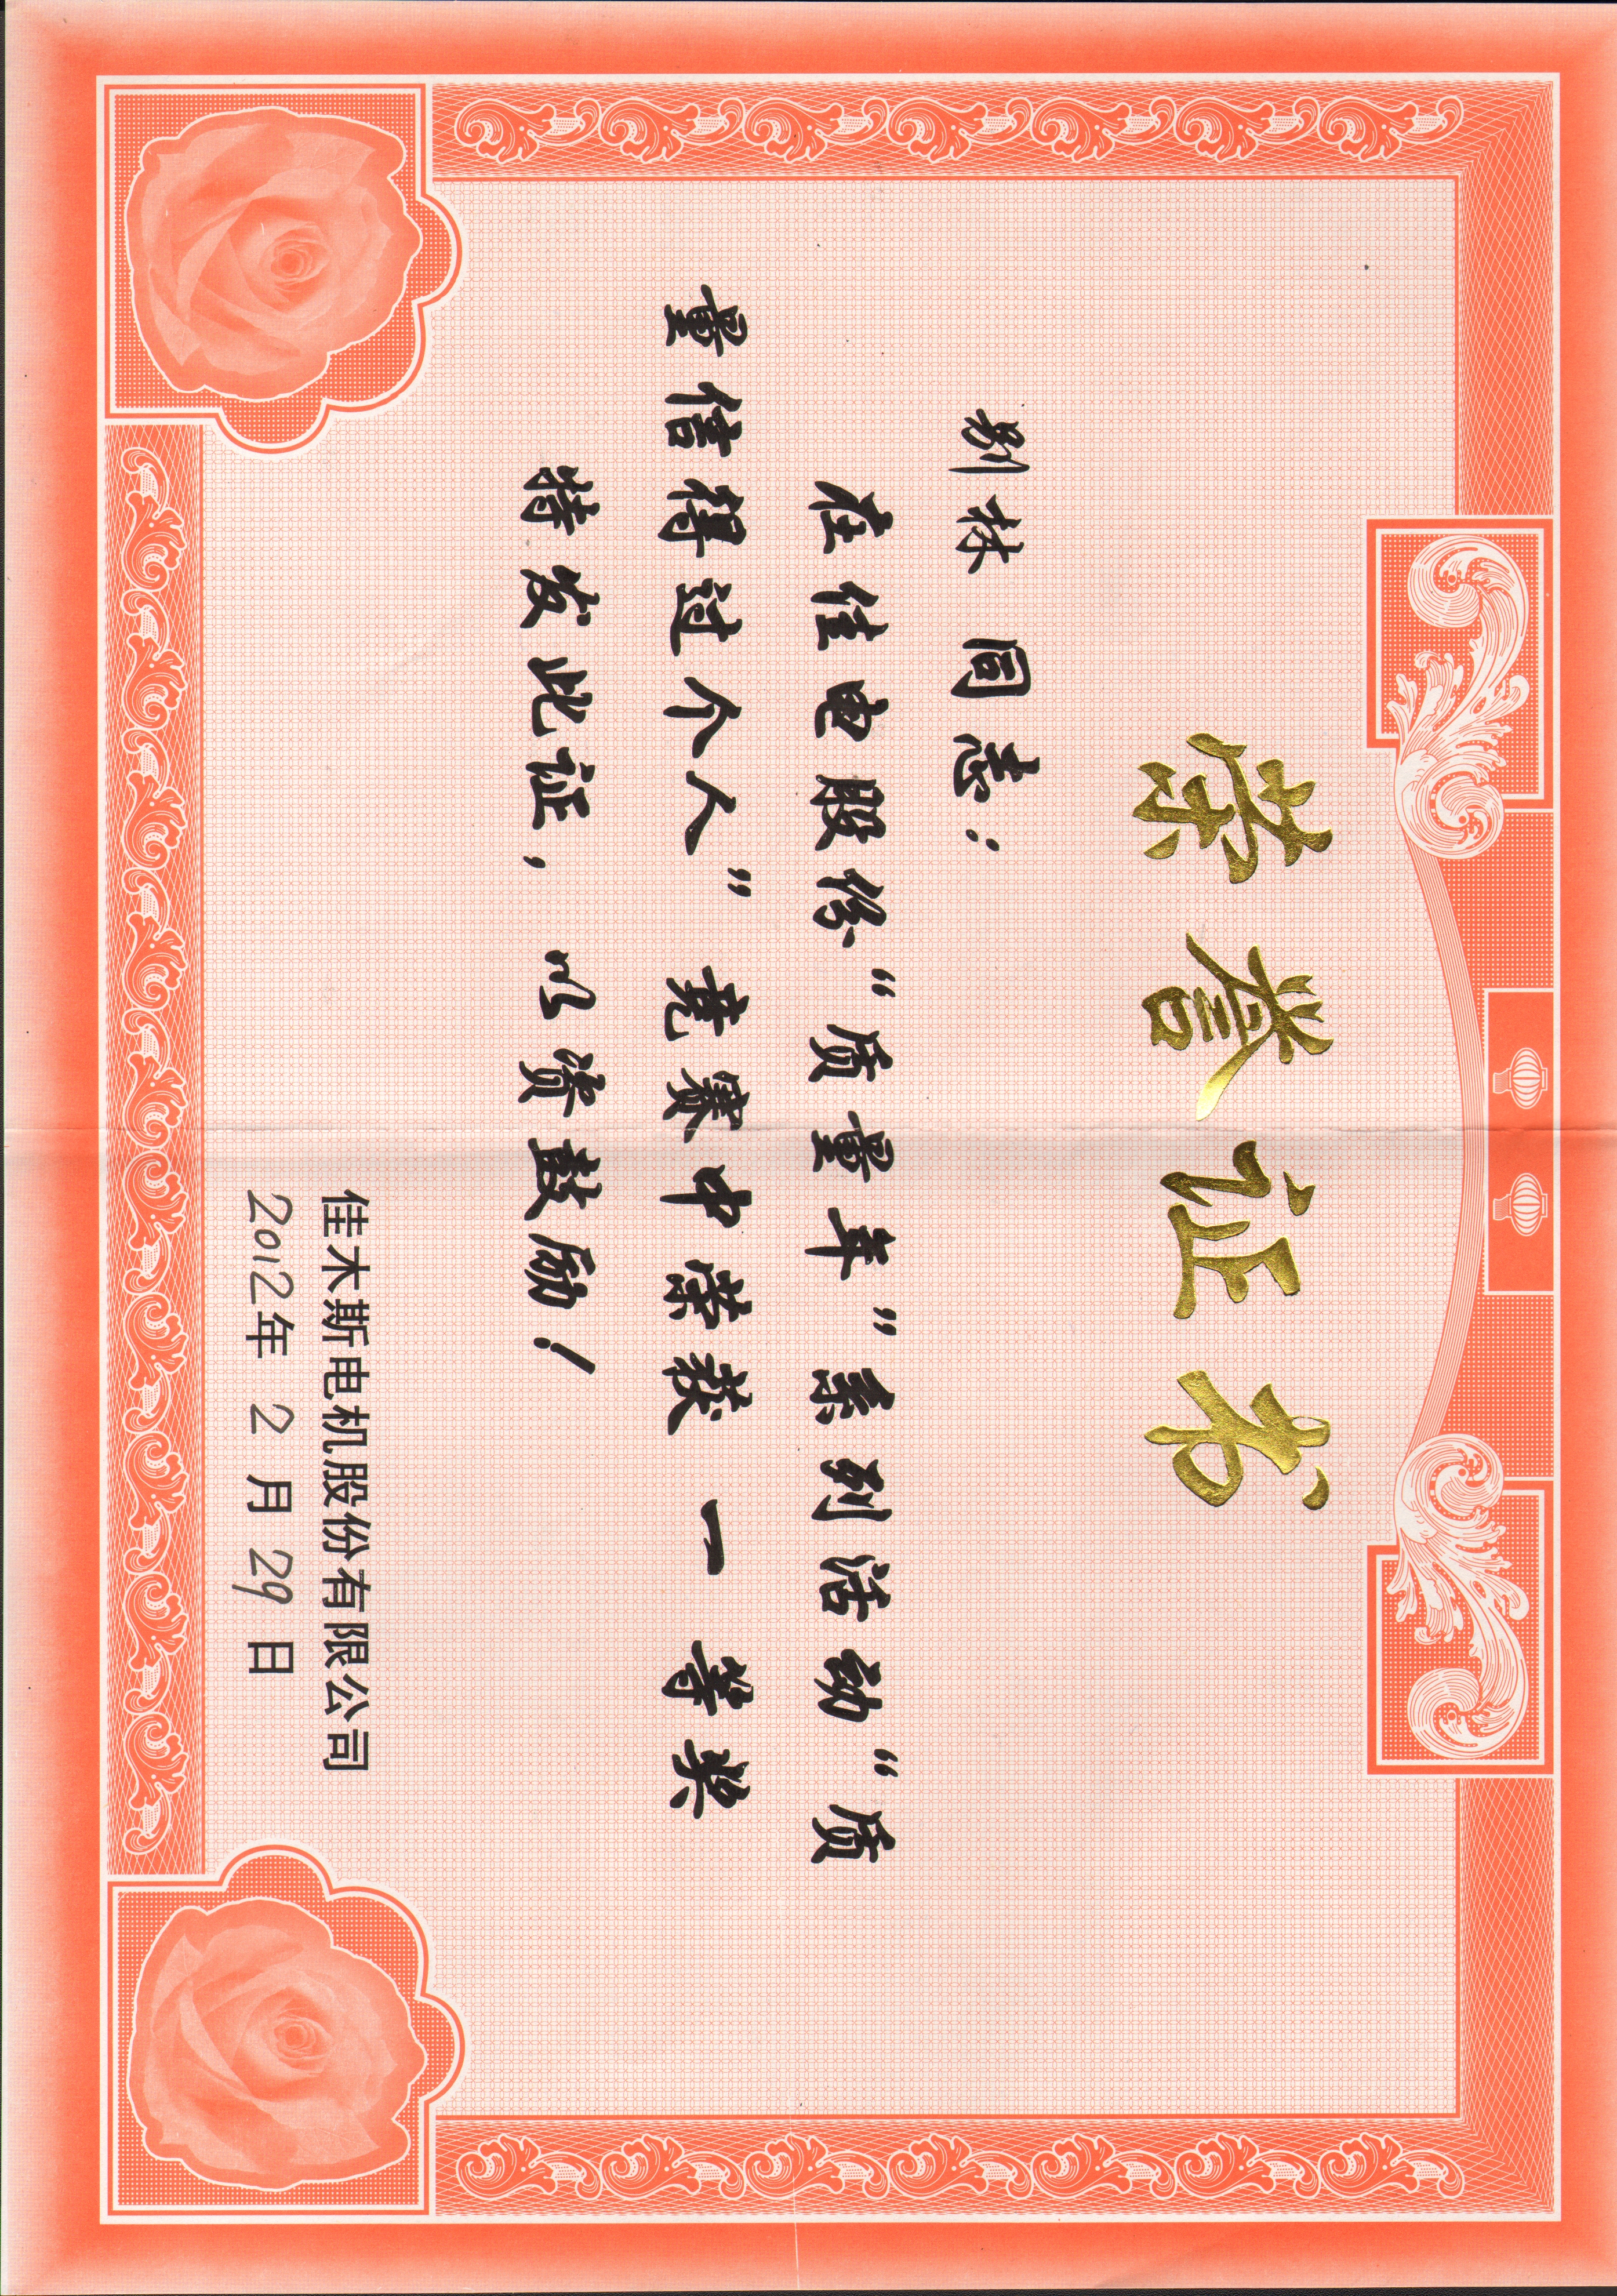 荣誉证书
别林 同志：
在佳电股份“质量年”系列活动“质
量信得过个人”竞赛中荣获 一 等奖
特发此证，以资鼓励！
佳木斯电机股份有限公司
2012年 2 月 29 日